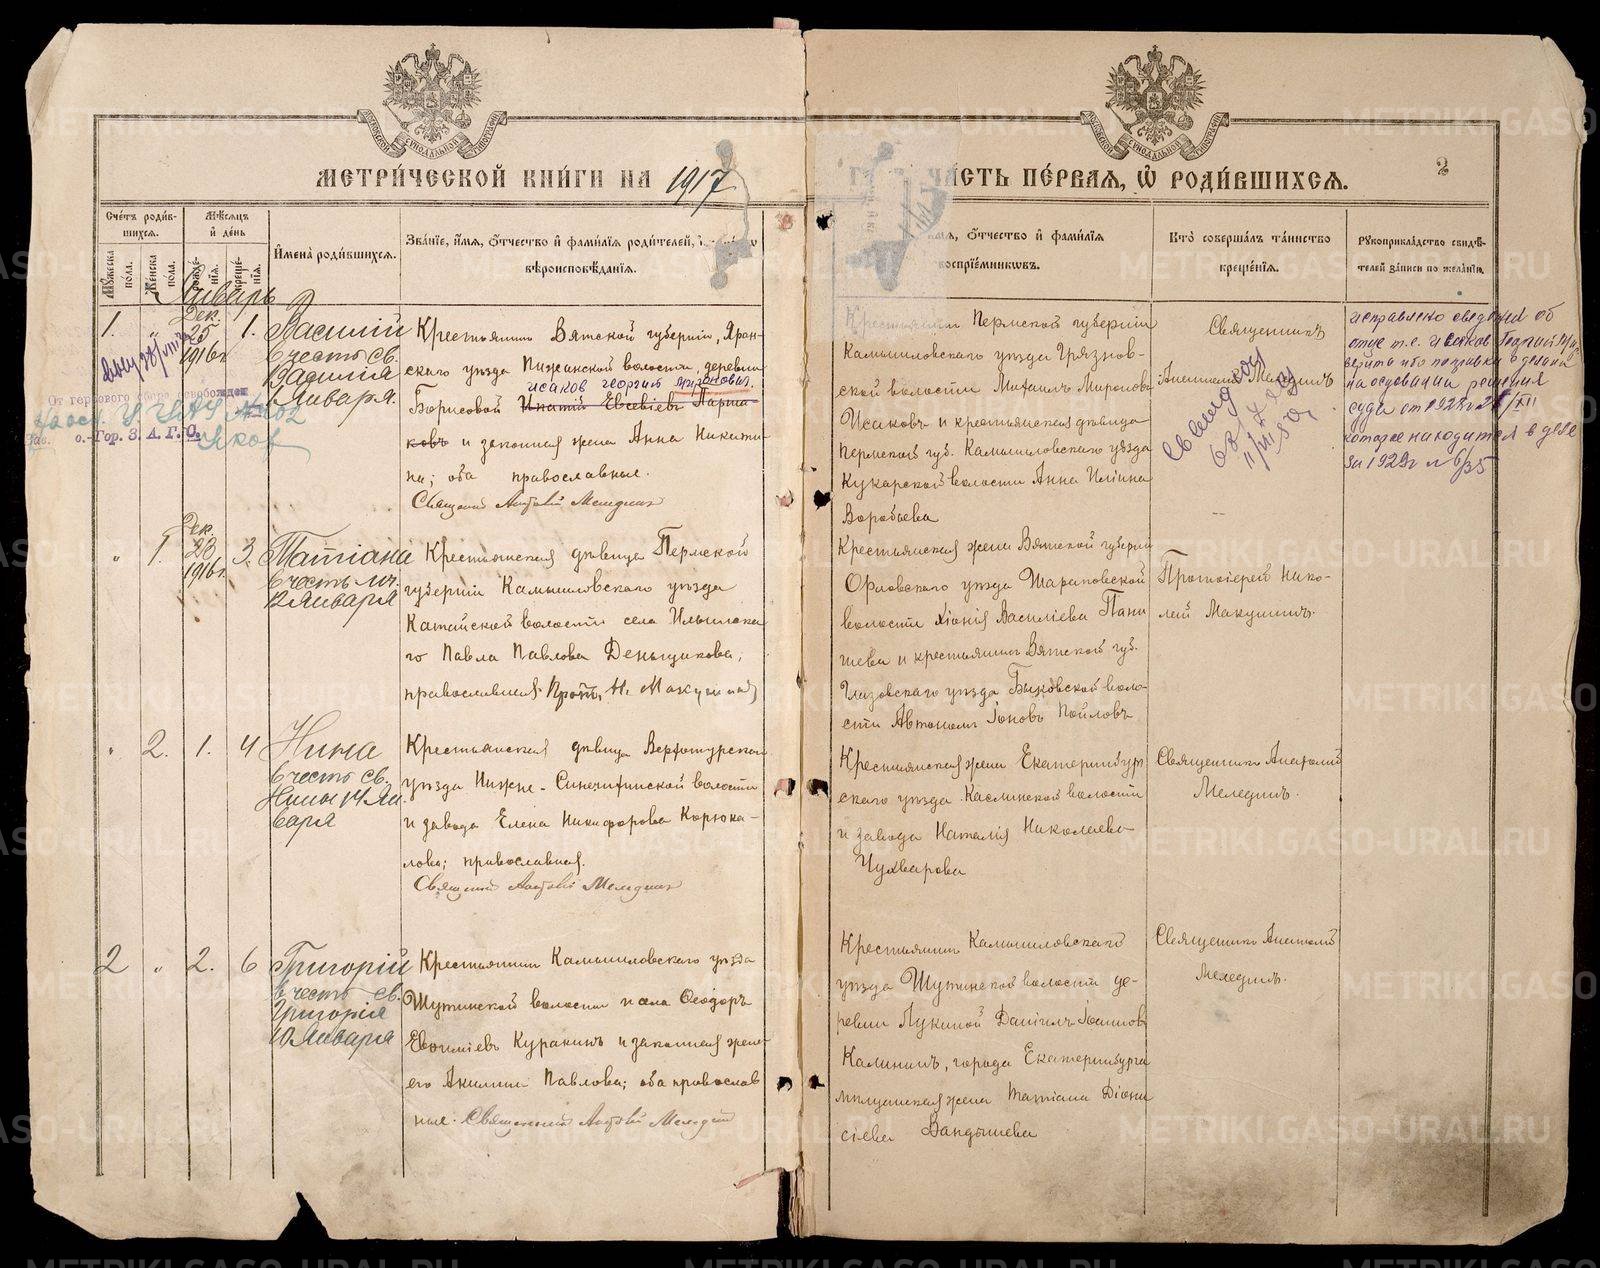 МЕТРИ́ЧЕСКОЙ КНИ́ГИ НА 1917
ЧА́СТЬ ПЕ́РВАЯ, Ѽ РОДИ́ВШИХСЯ.
2
Сче́тъ роди́в-
шихся.
Мѣ́сяцъ
и де́нь
Имена̀ роди́вшихся.
Зва́нїе, и́мя, о́тчество и фами́лїя роди́телей,
вѣроисповѣ́данїя.
о́тчество и фами́лїя
воспрїе́мниковъ.
Кто̀ соверша́лъ та́инство
креще́нїя.
Рукоприкла́дство свидѣ́-
телей за́писи по жела́нїю.
Му́жеска по́ла.
Же́нска по́ла.
рожде́нїя.
креще́нїя.
Январь
1.
"
Дек.
25
1916 г.
1.
Василій
в честь св.
Василія
1 Января.
Крестьянин Вятской губерніи, Яран-
скаго уѣзда Пижанской волости, деревни
исаков георгий миронович.
Борисовой Игнатій Евсевіевъ Парша-
ковъ и законная жена Анна Никити-
на; оба православные.
Священник Анатолій Мелединъ
Крестьянин Пермской губерніи
Камышловскаго уѣзда Грязнов-
ской волости Михаилъ Миронов
Исаковъ и крестьянская дѣвица
Пермской губ. Камышловскаго уѣзда
Кукарской волости Анна Ильина
Воробьева
Священникъ
Анатолій Мелединъ
исправлено сведения об
отце т.е. исаков Георгий
на основании решения
суда от 1928 г 21/XII
которое находится в деле
за 1929 г N 6/35
От гербового сбора освобожден
Гор. З. А. Г. С.
"
1.
Дек.
28
1916 г.
3.
Татіана
в честь мч.
12 Января
Крестьянская дѣвица Пермской
губерніи Камышловскаго уѣзда
Катайской волости села Ильинска-
го Павла Павлова Деньщикова,
православная. Прот. Н. Макушинъ
Крестьянская жена Вятской губерніи
Орловскаго уѣзда Шараповской
волости Хіонія Василіева Пани
шева и крестьянин Вятской губ.
Глазовскаго уѣзда Быковской воло-
сти Автоном Іоновъ Пойловъ
Протоіерей Нико-
лай Макушинъ.
"
2.
1.
4
Нина
в честь св.
Нины 14 Ян-
варя
Крестьянская дѣвица Верхотурскаго
уѣзда Нижне-Синячихинской волости
и завода Елена Никифорова Корюка-
лова; православная.
Священник Анатолій Мелединъ
Крестьянская жена Екатеринбург-
скаго уѣзда Каслинской волости
и завода Наталія Николаева
Чухварова
Священник Анатолій
Мелединъ.
2
"
2.
6
Григорій
в честь св.
Григорія
10 Января
Крестьянин Камышловскаго уѣзда
Шутинской волости и села Ѳеодоръ
Евфиміевъ Куракинъ и законная жена
его Акилина Павлова; оба православ
ные. Священник Анатолій Мелединъ
Крестьянин Камышловскаго
уѣзда Шутинской волости де-
ревни Лукиной Даніилъ Іоаннов
Калининъ, города Екатеринбурга
мѣщанская жена Татіана Діони
сіева Вандышева
Священник Анатолій
Мелединъ.
METRIKI.GASO-URAL.RU